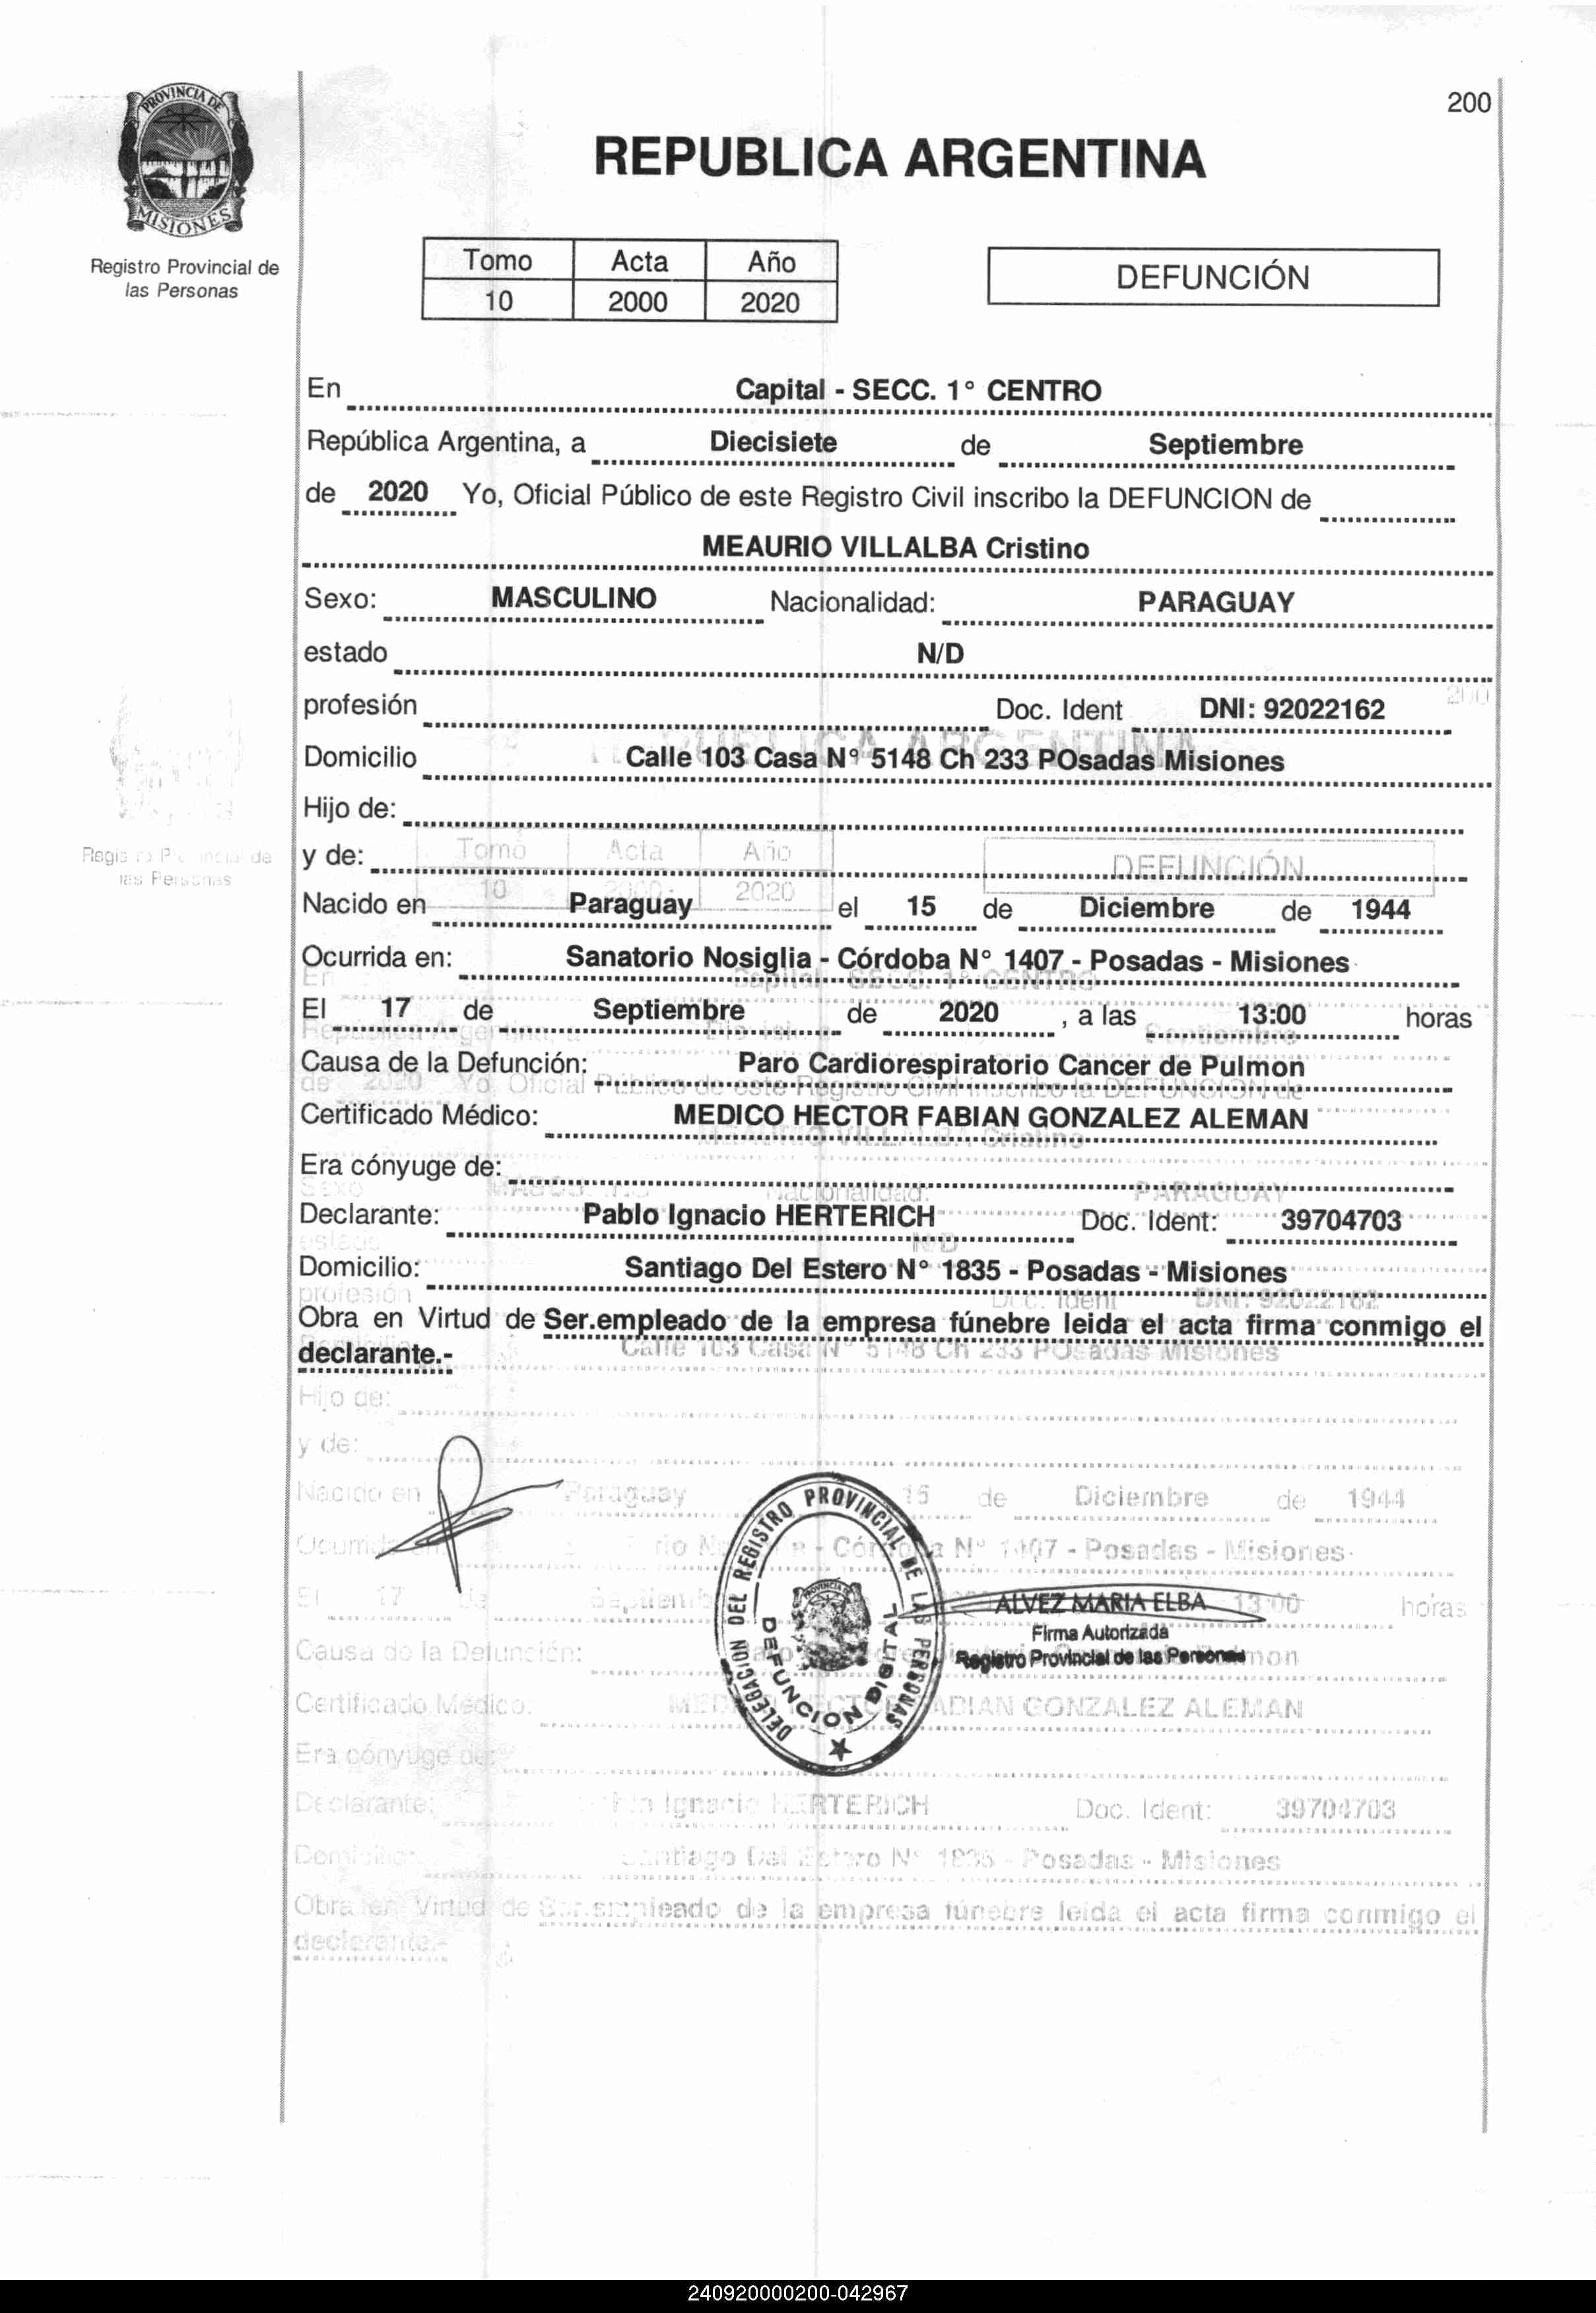 200
PROVINCIA DE
MISIONES
REPUBLICA ARGENTINA
Registro Provincial de
las Personas
Tomo Acta Año
10 2000 2020
DEFUNCIÓN
En Capital - SECC. 1° CENTRO
República Argentina, a Diecisiete de Septiembre
de 2020 Yo, Oficial Público de este Registro Civil inscribo la DEFUNCION de
MEAURIO VILLALBA Cristino
Sexo: MASCULINO Nacionalidad: PARAGUAY
estado N/D
profesión Doc. Ident DNI: 92022162
Domicilio Calle 103 Casa N° 5148 Ch 233 POsadas Misiones
Hijo de:
y de:
Nacido en Paraguay el 15 de Diciembre de 1944
Ocurrida en: Sanatorio Nosiglia - Córdoba N° 1407 - Posadas - Misiones
El 17 de Septiembre de 2020 , a las 13:00 horas
Causa de la Defunción: Paro Cardiorespiratorio Cancer de Pulmon
Certificado Médico: MEDICO HECTOR FABIAN GONZALEZ ALEMAN
Era cónyuge de:
Declarante: Pablo Ignacio HERTERICH Doc. Ident: 39704703
Domicilio: Santiago Del Estero N° 1835 - Posadas - Misiones
Obra en Virtud de Ser.empleado de la empresa fúnebre leida el acta firma conmigo el
declarante.-
DELEGACION DEL REGISTRO PROVINCIAL DE LAS PERSONAS
DEFUNCION DIGITAL
ALVEZ MARIA ELBA
Firma Autorizada
Registro Provincial de las Personas
240920000200-042967